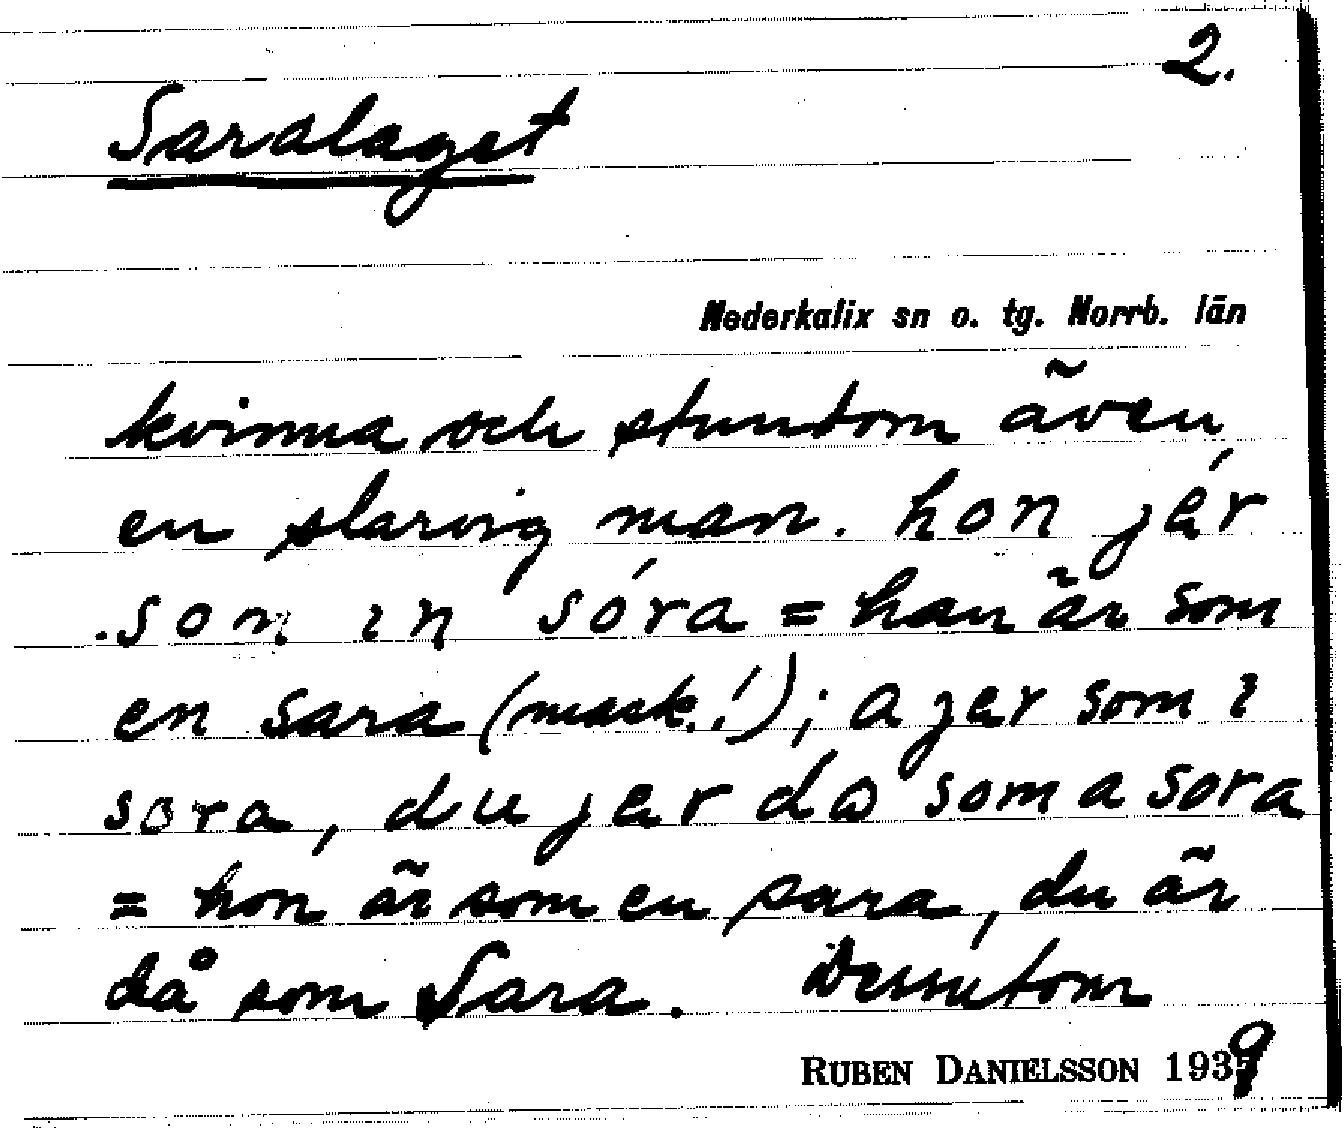 2.
Saralaget
Nederkalix sn o. tg. Norrb. län
kvinna och stundom även
en slarvig man. hon jér
son ın sóra = han är som
en sara (mask.!); a jer som ı
sora, du jer da som a sora
= hon är som en sara, du är
då som Sara. Dessutom
RUBEN DANIELSSON 1939